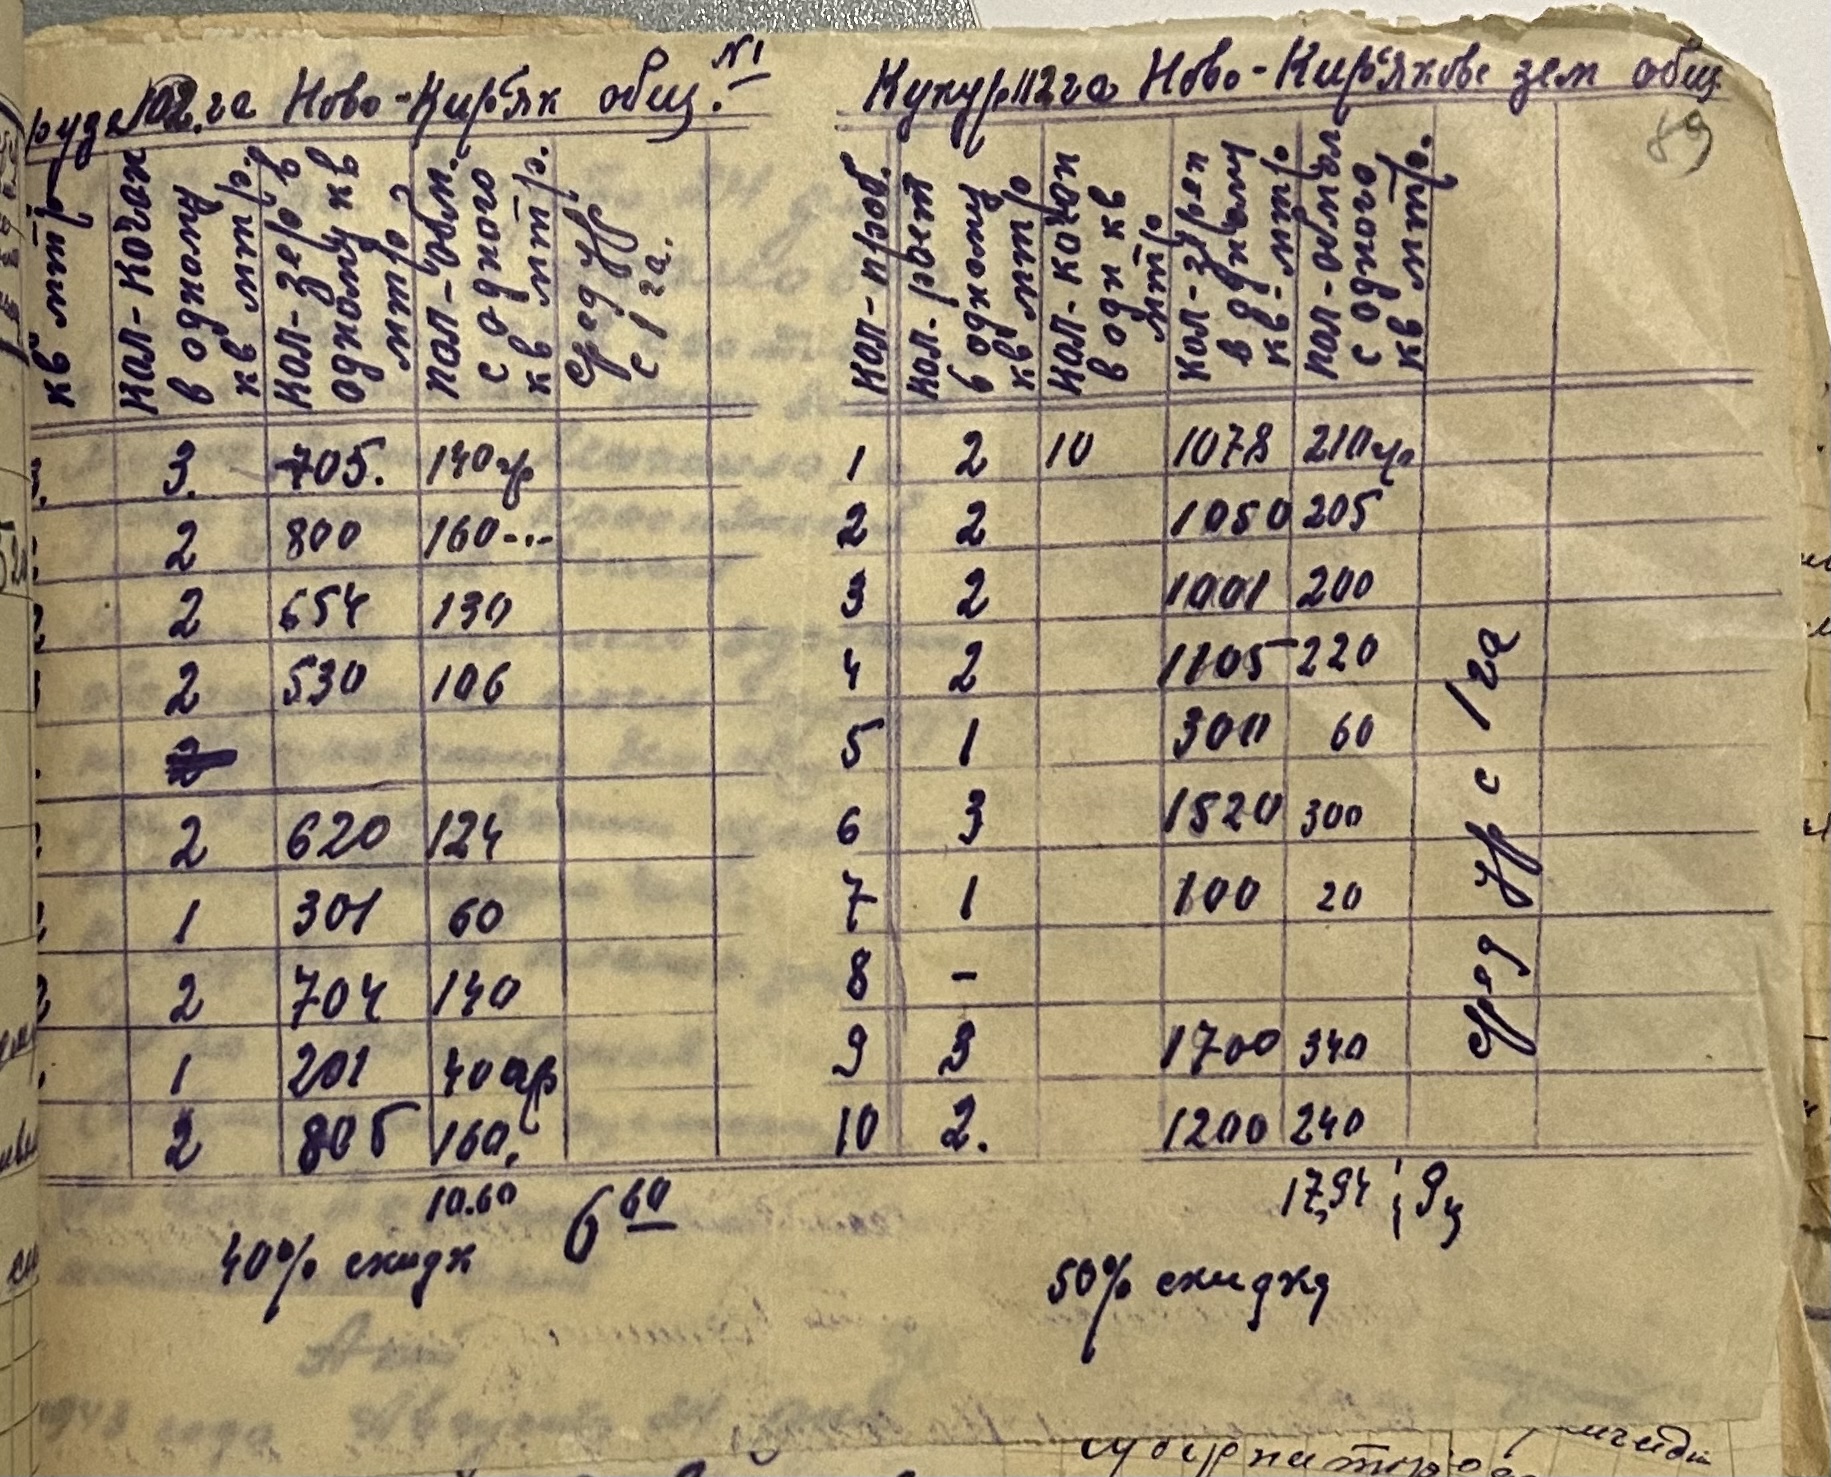 руза 102.га Ново-Кир'як общ. №1
кв мтр
кол-кочан в одному кв мтр.
кол-зер в одному кв мтр
кол-обм. с одного кв мтр.
Сред Ур с 1 га.
3. 705. 140 гр
2 800 160 -..-
2 654 130
2 530 106
2
2 620 124
1 301 60
2 704 140
1 201 40 гр
2 805 160.
10.60 6 60
40% скидк
Кукур 112 га Ново-Кир'якове зем общ
89
кол-проб.
кол. рост в одному кв мтр
кол-кочан в одн кв мтр
кол-зерен в одному кв-мтр
кол-обмол с одного кв мтр.
Сред Ур с 1 га
1 2 10 1078 210 гр
2 2 1050 205
3 2 1001 200
4 2 1105 220
5 1 300 60
6 3 1520 300
7 1 100 20
8 -
9 3 1700 340
10 2. 1200 240
17,94 9ц
50% скидка